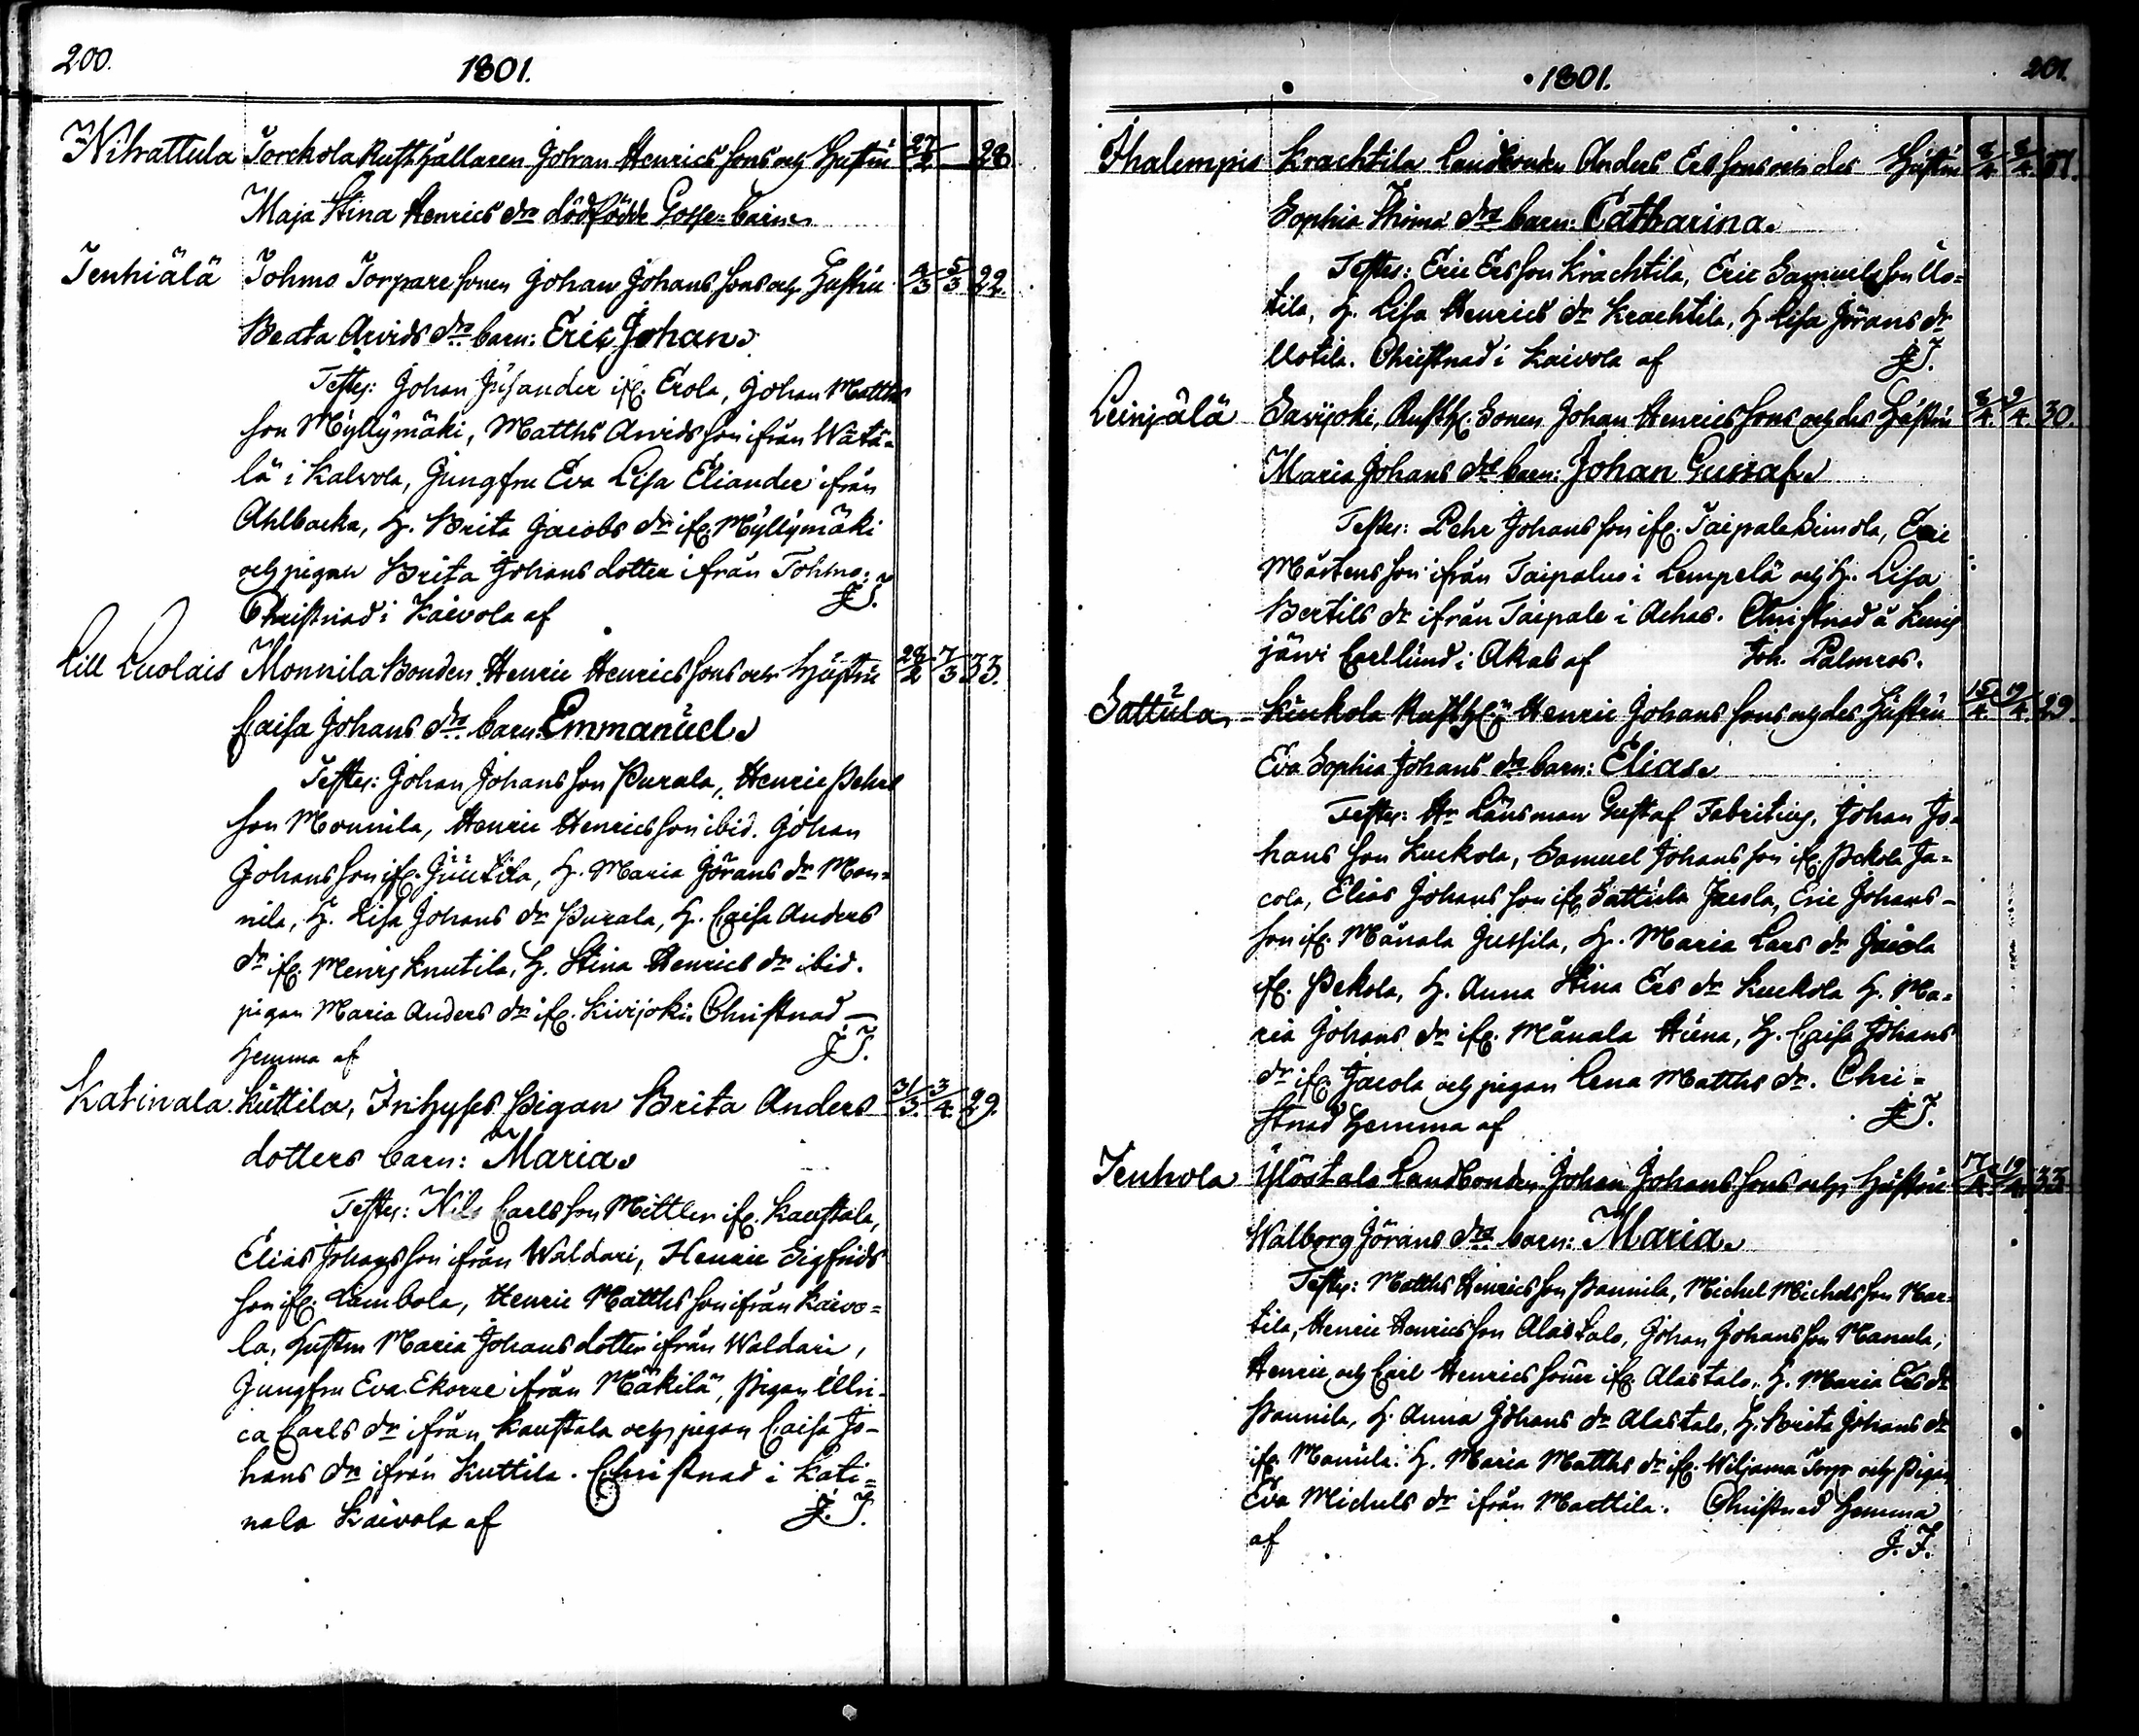 200.
1801.
Nihattula Torckola Rusthållaren Johan Henricssons och Hustru 27/2 28
Maja Stina Henrics drs dödfödde Gosse=barn.
Tenhiälä Tohmo Torparesonen Johan Johanssons och Hustru 4/3 5/3 22.
Beata Arvids drs. barn: Eric Johan.
Testes: Johan Jusander ifr. Erola, Johan Matths
son Myllymäki, Matths Arvidsson ifrån Wätä=
lä i Kalvola, Jungfru Eva Lisa Eliander ifrån
Ahlbacka, H. Brita Jacobs dr ifr. Myllymäki
och pigan Brita Johans dotter ifrån Tohmo:
Christnad i Kaivola af J.T.
Lill Luolais Monnila Bonden Henric Henricssons och Hustru 28/2 7/3 33.
Caisa Johans drs. barn: Emmanuel.
Testes: Johan Johansson Purala, Henric Pehrs
son Monnila, Henric Henricsson ibid. Johan
Johansson ifr. Juutila, H. Maria Görans dr Mon=
nila, H. Lisa Johans dr Purala, H. Caisa Anders
dr ifr. Menis Knutila, H. Stina Henrics dr ibid.
pigan Maria Anders dr ifr. Kivijoki. Christnad
hemma af J.T.
Katinala Kuttila, Inhyses Pigan Brita Anders 31/3. 3/4. 29.
dotters barn: Maria.
Testes: Nils Carlsson Mittler ifr. Kaustala,
Elias Johansson ifrån Waldari, Henric Sigfrids
son ifr. Lambola, Henric Matthsson ifrån Kaivo=
la, Hustrun Maria Johansdotter ifrån Waldari,
Jungfru Eva Ekorre ifrån Mäkilä, Pigan Ulri=
ca Carls dr ifrån Kaustala och pigan Caisa Jo=
hans dr ifrån Kuttila. Christnad i Kati=
nala Kaivola af J.T.
1801.
201.
Ihalempis Krachtila Landbonden Anders Erssons och des Hustru 3/4. 31.
Sophia Thoma drs barn: Catharina.
Testes: Eric Ersson Krachtila, Eric Samuelsson Uo=
tila, H. Lisa Henrics dr Krachtila, H. Lisa Görans dr
Uotila. Christnad i Kaivola af J.T.
Leinjälä Savijoki, Rusth. Sonen Johan Henricssons och des Hustru 8/4. 9/4. 30.
Maria Johans drs barn: Johan Gustaf.
Testes: Pehr Johansson ifr. Taipale Simola, Eric
Mårtensson ifrån Taipalus i Lempelä och H. Lisa
Bertils dr ifrån Taipale i Achas. Christnad å
järvi i Akas af Joh. Palmros.
Sattula Kuckola Rusth. Henric Johanssons och des Hustru 15/4. 19/4. 29.
Eva Sophia Johans drs barn: Elias.
Testes: Hr Länsman Gustaf Fabritius, Johan Jo=
hans son Kuckola, Samuel Johansson ifr. Pekola Ja=
cola, Elias Johansson ifr. Sattula Jacola, Eric Johans=
son ifr. Mänala Jussila, H. Maria Lars dr Jacola
ifr. Pekola, H. Anna Stina Ers dr Kuckola H. Ma=
ria Johans dr ifr. Mänala, H. Caisa Johans
dr ifr. Jacola och pigan Lena Matths dr. Chri=
stnad hemma af J.T.
Tenhola Ylöstalo Landbonden Johan Johanssons och Hustru 17/4. 19/4. 33.
Walborg Görans drs barn: Maria.
Testes: Matths Henricsson Pannila, Michel Michelsson Mar=
tila, Henric Henricsson Alastalo, Johan Johansson Manula,
Henric och Carl Henricssöner ifr. Alastalo. H. Maria Ers dr
Pannila, H. Anna Johans dr Alastalo, H. Brita Johans dr
ifr. Manula. H. Maria Matths dr ifr. Wiljama Torp och Pigan
Eva Michels dr ifrån Marttila. Christnad hemma
af J.T.